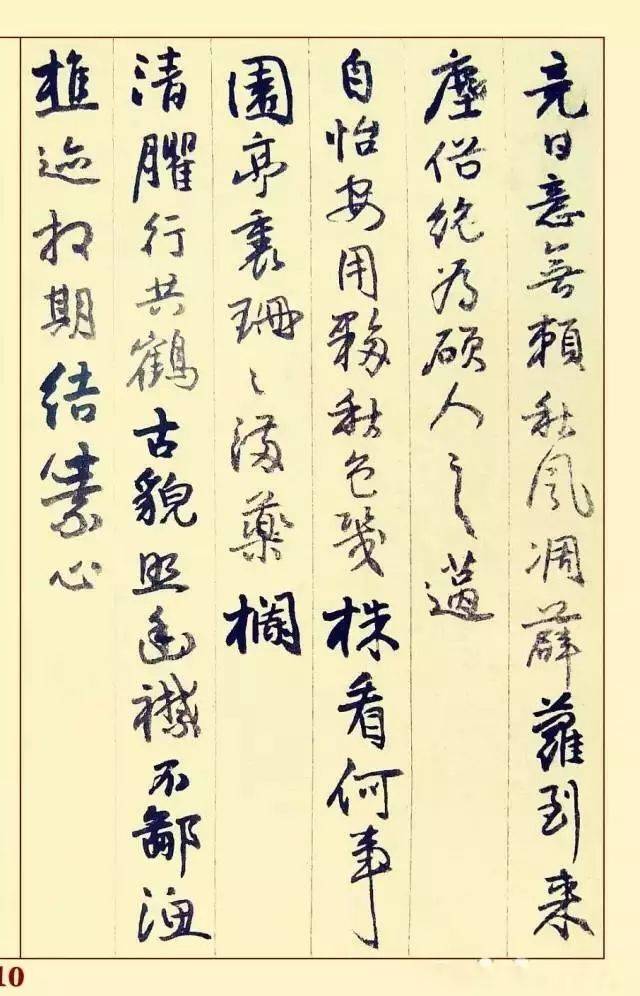 竟日意無賴秋風凋薜蘿到来
塵俗絶為碩人之薖
自怡安用夥秋色幾株看何事
園亭裏珊々滿藥欄
清臞行共鶴古貌照幽襟不鄙漁
樵迹相期結素心
10